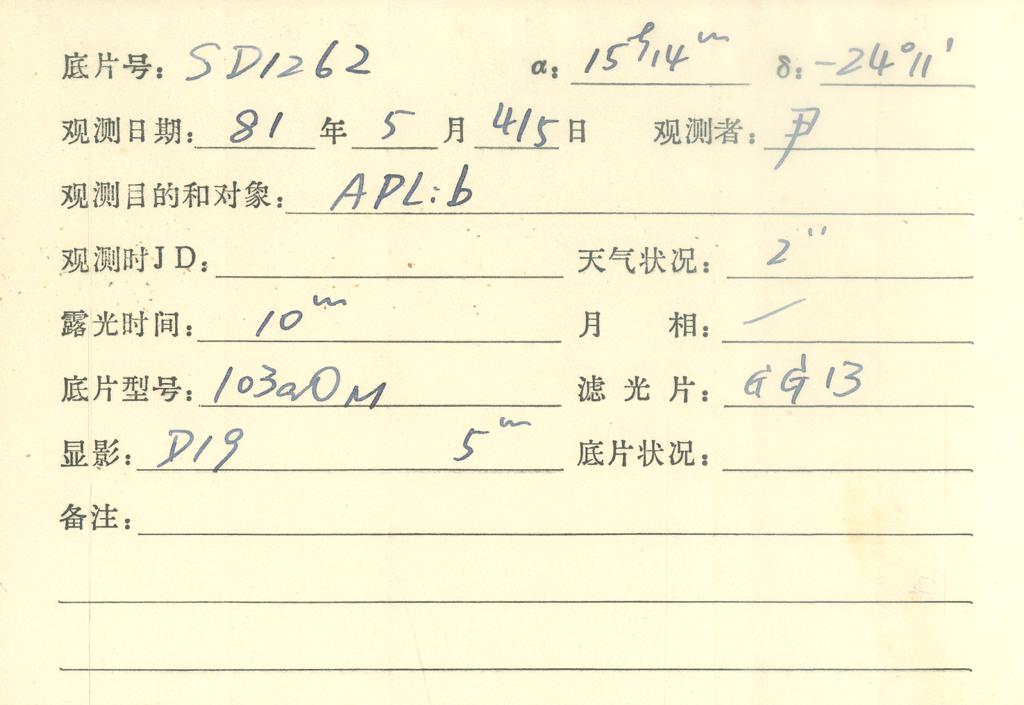 底片号: SD1262 α: 15ʰ14ᵐ δ: -24°11'
观测日期: 81 年 5 月 4/5 日 观测者: 尹
观测目的和对象: APL:b
观测时JD: 天气状况: 2''
露光时间: 10ᵐ 月 相: /
底片型号: 103aO M 滤光片: GG13
显影: D19 5ᵐ 底片状况:
备注: